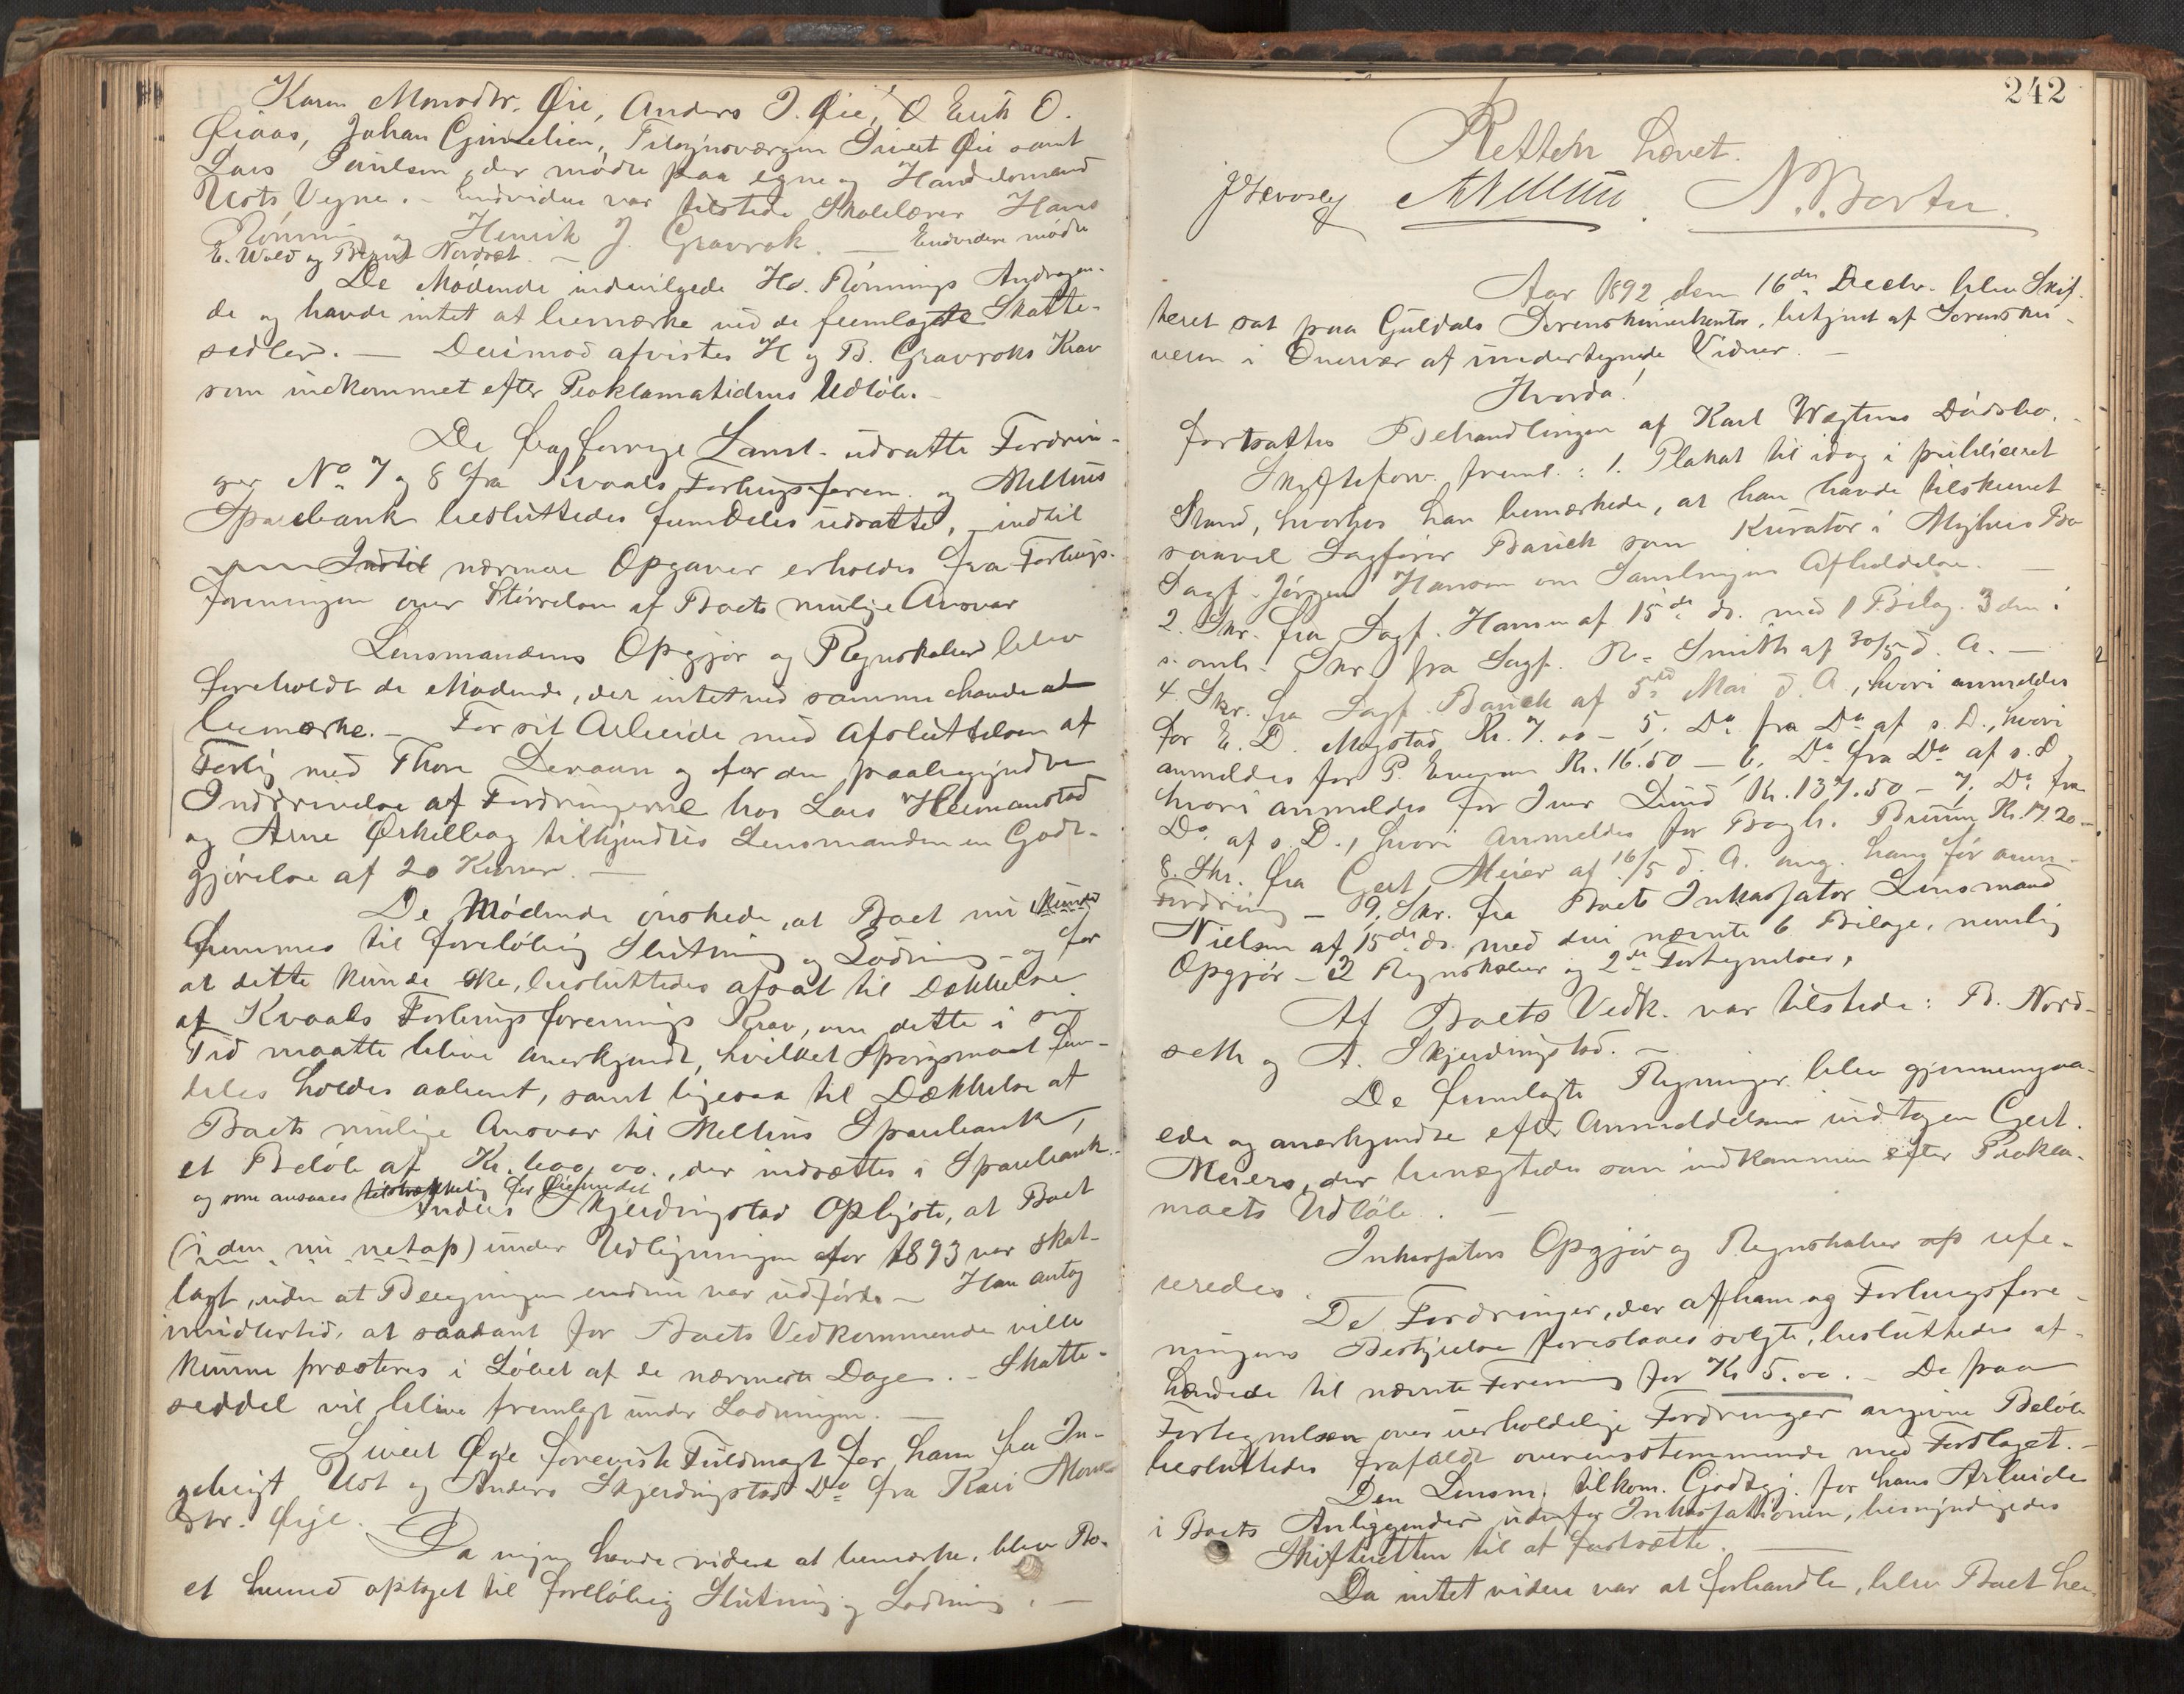 Karen Monsdtr. Øie, Anders J. Øie, O Erik O.
Øiaas, Johan Gjimlien, Tilsynsværgen Sivert Øie samt
Lars Paulsen, der mødte paa egne og Handelsmand
Usts Vegne. – Endvidere var tilstede Skolelærer Hans
Rönning og Henrik J. Gravrok. — Endvidere mødte
E. Wold og Bernt Nordset. –
De Mødende indvilgede Hs. Rönnings Andragen-
de og havde intet at bemærke ved de fremlagte Skatte-
sedler. — Derimod afvistes H og B. Gravroks Krav
som indkommet efter Proklamatidens Udløb. –
De fra forrige Saml. udsatte Fordrin-
ger No 7 og 8 fra Kvaals Forbrugsforen. og Melhus
Sparebank besluttedes fremdeles udsatte, indtil
Indtil nærmere Opgaver erholdes fra Forbrugs-
foreningen over Størrelsen af Boets mulige Ansvar
Lensmandens Opgjør og Regnskaber blev
foreholdt de Mødende, der intet ved samme havde at
bemærke. – For sit Arbeide med Afsluttelsen af
Forlig med Thore Devaun og for den paabegyndte
Inddrivelse af Fordringerne hos Lars Heimanstad
og Arne Ørkilbog tilkjendtes Lensmanden en Godt-
gjørelse af 20 Kroner. —
De Mødende ønskede, at Boet nu kunde
fremmes til foreløbig Slutning og Lodning – og for
at dette kunde ske, besluttedes afsat til Dækkelse
af Kvaals Forbrugsforenings Krav, om dette i sin
Tid maatte blive anerkjendt, hvilket Spørgsmaal frem-
deles holdes aabent, samt ligesaa til Dækkelse af
Boets mulige Ansvar til Melhus Sparebank,
et Beløb af Kr. 600,00., der indsættes i Sparebank
og som ansaaes tilstrækkelig for Øiemedet
Anders Skjerdingstad oplyste, at Boet
(i den nu netop) under Udligningen for 1893 var skat-
lagt, uden at Beregningen endnu var udført. – Han antog
imidlertid, at saadant for Boets Vedkommende ville
kunne præsteres i Løbet af de nærmeste Dage. – Skatte-
seddel vil blive fremlagt under Lodningen. —
Sivert Øie foreviste Fuldmagt for ham fra In-
gebrigt Ust og Anders Skjerdingstad Do fra Kari Mons
dtr. Øije. –
Da ingen havde videre at bemærke, blev Bo-
et hermed optaget til foreløbig Slutning og Lodning. —
242
Retten hævet.
Aar 1892 den 16de Decbr. blev Skif-
teret sat paa Guldals Sorenskriverkontor, betjent af Sorenskri-
veren i Overvær af undertegnede Vidner. –
Hvorda!
fortsattes Behandlingen af Karl Wegtuns Dødsbo. –
Skifteforv. freml.: 1. Plakat til idag i publiceret
Stand, hvorhos han bemærkede, at han havde tilskrevet
saavel Sagfører Bauck som Kurator i Myhres Bo
Sagf. Jørgen Hansen om Samlingens Afholdelse. —
2. Skr. fra Sagf. Hansen af 15de ds. med 1 Bilag. 3 den i
s. omh. Skr. fra Sagf. R. Smith af 30/5 d. A. —
4. Skr. fra Sagf. Bauck af 5te Mai d. A., hvori anmeldes
for E. D. Mogstad Kr. 7.00 – 5. Do fra Do af s. D., hvori
anmeldes for P. Kr. 16.50 – 6. Do fra Do af s. D
hvori anmeldes for Iver Lund Kr. 137.50 – 7. Do fra
Do af s. D., hvori anmeldes for Bogh. Bruun Kr. 17.20 –
8. Skr. fra Gert Meier af 16/5 d. A. ang. hans før anm.
Fordring – 9. Skr. fra Boets Inkassator Lensmand
Nielsen af 15de ds. med deri nævnte 6 Bilage, nemlig
Opgjør – 3 Regnskaber og 2de Fortegnelser,
Af Boets Vedk. var tilstede: B. Nord-
seth og A. Skjerdingstad. –
De fremlagte Regninger blev gjennemgaa-
ede og anerkjendte efter Anmeldelserne undtagen Gert
Meiers, der benægtedes som indkommen efter Prokla-
maets Udløb. –
Inkassators Opgjør og Regnskaber op refe-
reredes.
De Fordringer, der af ham og Forbrugsfore-
ningens Bestyrelse foreslaaes solgte, besluttedes af-
hændede til nævnte Forening for Kr 5.00. – De paa
Fortegnelsen over uerholdelige Fordringer angivne Beløb
besluttedes frafaldt overensstemmende med Forslaget. –
Den Lensm. tilkom. Godtgj. for hans Arbeide
i Boets Anliggender udenfor Inkassationen, bemyndigedes
Skifteretten til at fastsætte. —
Da intet videre var at forhandle, blev Boet her